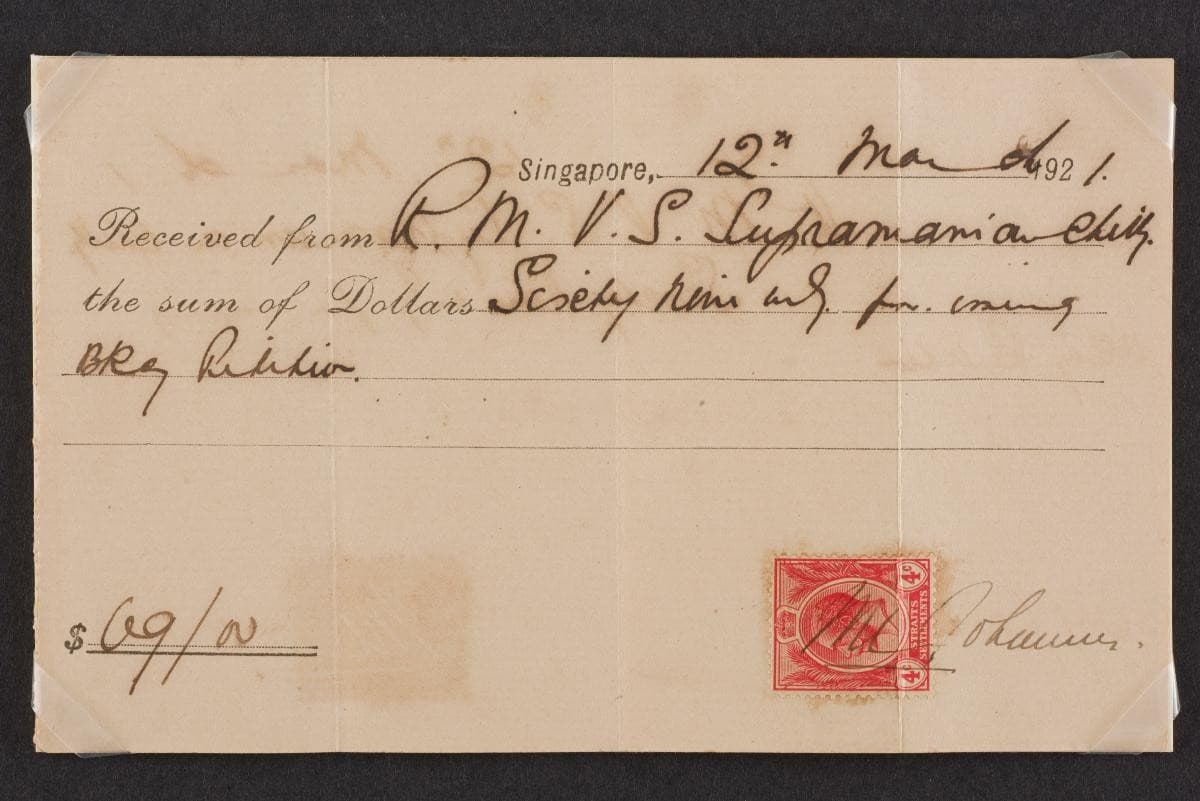 Singapore, 12th March 1921.
Received from R. M. V. S. Supramanian Chitty.
the sum of Dollars Sixety Nine only. for
Bkcy Petition.
$ 69/00
4c STRAITS SETTLEMENTS 4c
Johannes.